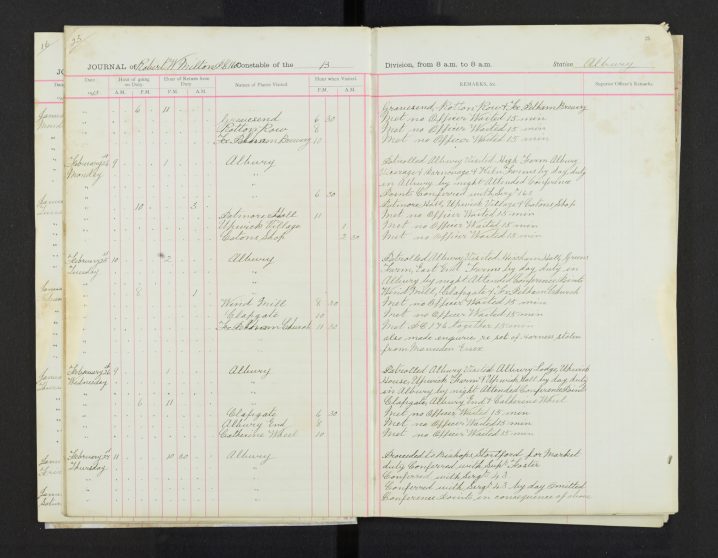 25
JOURNAL of Robert W. Constable of the B Division, from 8 a.m. to 8 a.m. Station Albury
Date Hour of going on Duty Hour of Return from Duty Names of Places Visited Hour when Visited REMARKS, &c. Superior Officer's Remarks
A.M. P.M. P.M. A.M. P.M. A.M.
6 11 Gravesend, Rotton Row & Fx Pelham Brewery
Gravesend 6 30 Met no Officer Waited 15 min
Rotton Row 8 Met no Officer Waited 15 min
Fx Pelham Brewery 10 Met no Officer Waited 15 min
February 9 1 Albury Patrolled Albury Visited High Farm Albury
Monday Vicarage & Farms by day, duty
in Albury by night Attended Conference
6 30 Points Conferred with Sergt
10 3 Patmore Hall, Upwick Village & Cotons Shop
Patmore Hall 11 Met no Officer Waited 15 min
Upwick Village 1 Met no Officer Waited 15 min
Cotons Shop 2 30 Met no Officer Waited 15 min
February 10 2 Albury Patrolled Albury Visited Hall,
Tuesday Farm, East End Farms by day, duty in
Albury by night Attended Conference Points
8 1 Wind Mill, Clapgate, Fx Pelham Church
Wind Mill 8 30 Met no Officer Waited 15 min
Clapgate 10 Met no Officer Waited 15 min
Fx Pelham Church 11 30 Met P.C. 176 together 15 min
also made enquiries re set of Harness stolen
from Manuden Essex
February 26 9 1 Albury Patrolled Albury Visited Albury Lodge, Upwick
Wednesday House, Upwick Farm & Upwick Hall by day, duty
in Albury by night Attended Conference Points
6 11 Clapgate, Albury End & Catherine Wheel
Clapgate 6 30 Met no Officer Waited 15 min
Albury End 8 Met no Officer Waited 15 min
Catherine Wheel 10 Met no Officer Waited 15 min
February 27 11 10 30 Albury Proceeded to Bishops Stortford for Market
Thursday duty Conferred with Supt Foster
Conferred with Sergt 43
Conferred with Sergt 43 by day omitted
Conference Points in consequence of above